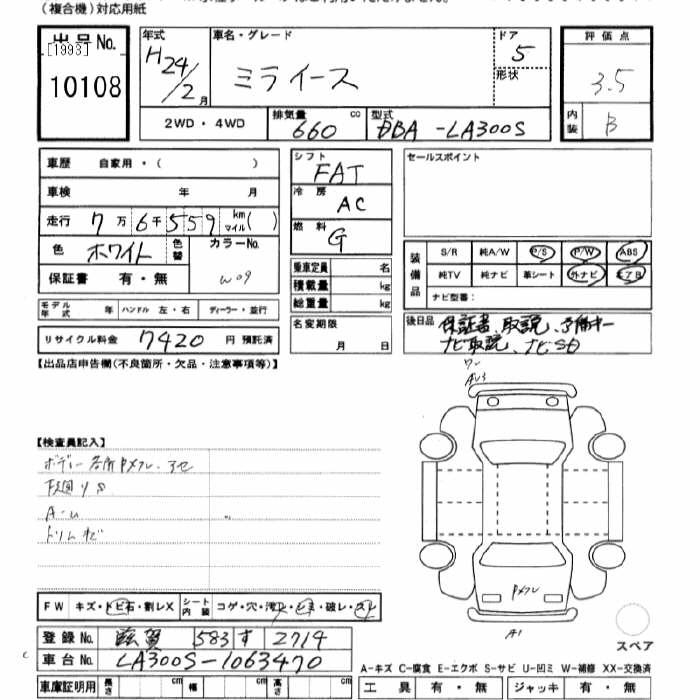 (複合機)対応用紙
出品 No.
[1993]
10108
年式 H24/2月
車名・グレード ミライース
ドア 5
形状
評価点 3.5
内装 B
2WD・4WD
排気量 660 cc
型式 DBA-LA300S
車歴 自家用・( )
車検 年 月
走行 7万6千559 km マイル( )
色 ホワイト 色替 カラーNo. W09
保証書 有・無
モデル年式 年 ハンドル 左・右 ディーラー・並行
リサイクル料金 7420 円 預託済
シフト FAT
冷房 AC
燃料 G
乗車定員 名
積載量 kg
総重量 kg
名変期限 月 日
セールスポイント
装備品 S/R 純A/W P/S P/W ABS
純TV 純ナビ 革シート 外ナビ エアB
ナビ型番:
後日品 保証書、取説、予備キー
ナビ取説、ナビSD
【出品店申告欄(不良箇所・欠品・注意事項等)】
【検査員記入】
ボディー各所
A-U
FW キズ・トビ石・割レX シート内装 コゲ・穴・汚レ・シミ・破レ・スレ
登録 No. 滋賀 583 す 2714
車台 No. LA300S-1063470
車庫証明用 長さ cm 幅 cm 高さ cm
A1
スペア
A-キズ C-腐食 E-エクボ S-サビ U-凹ミ W-補修 XX-交換済
工具 有・無 ジャッキ 有・無